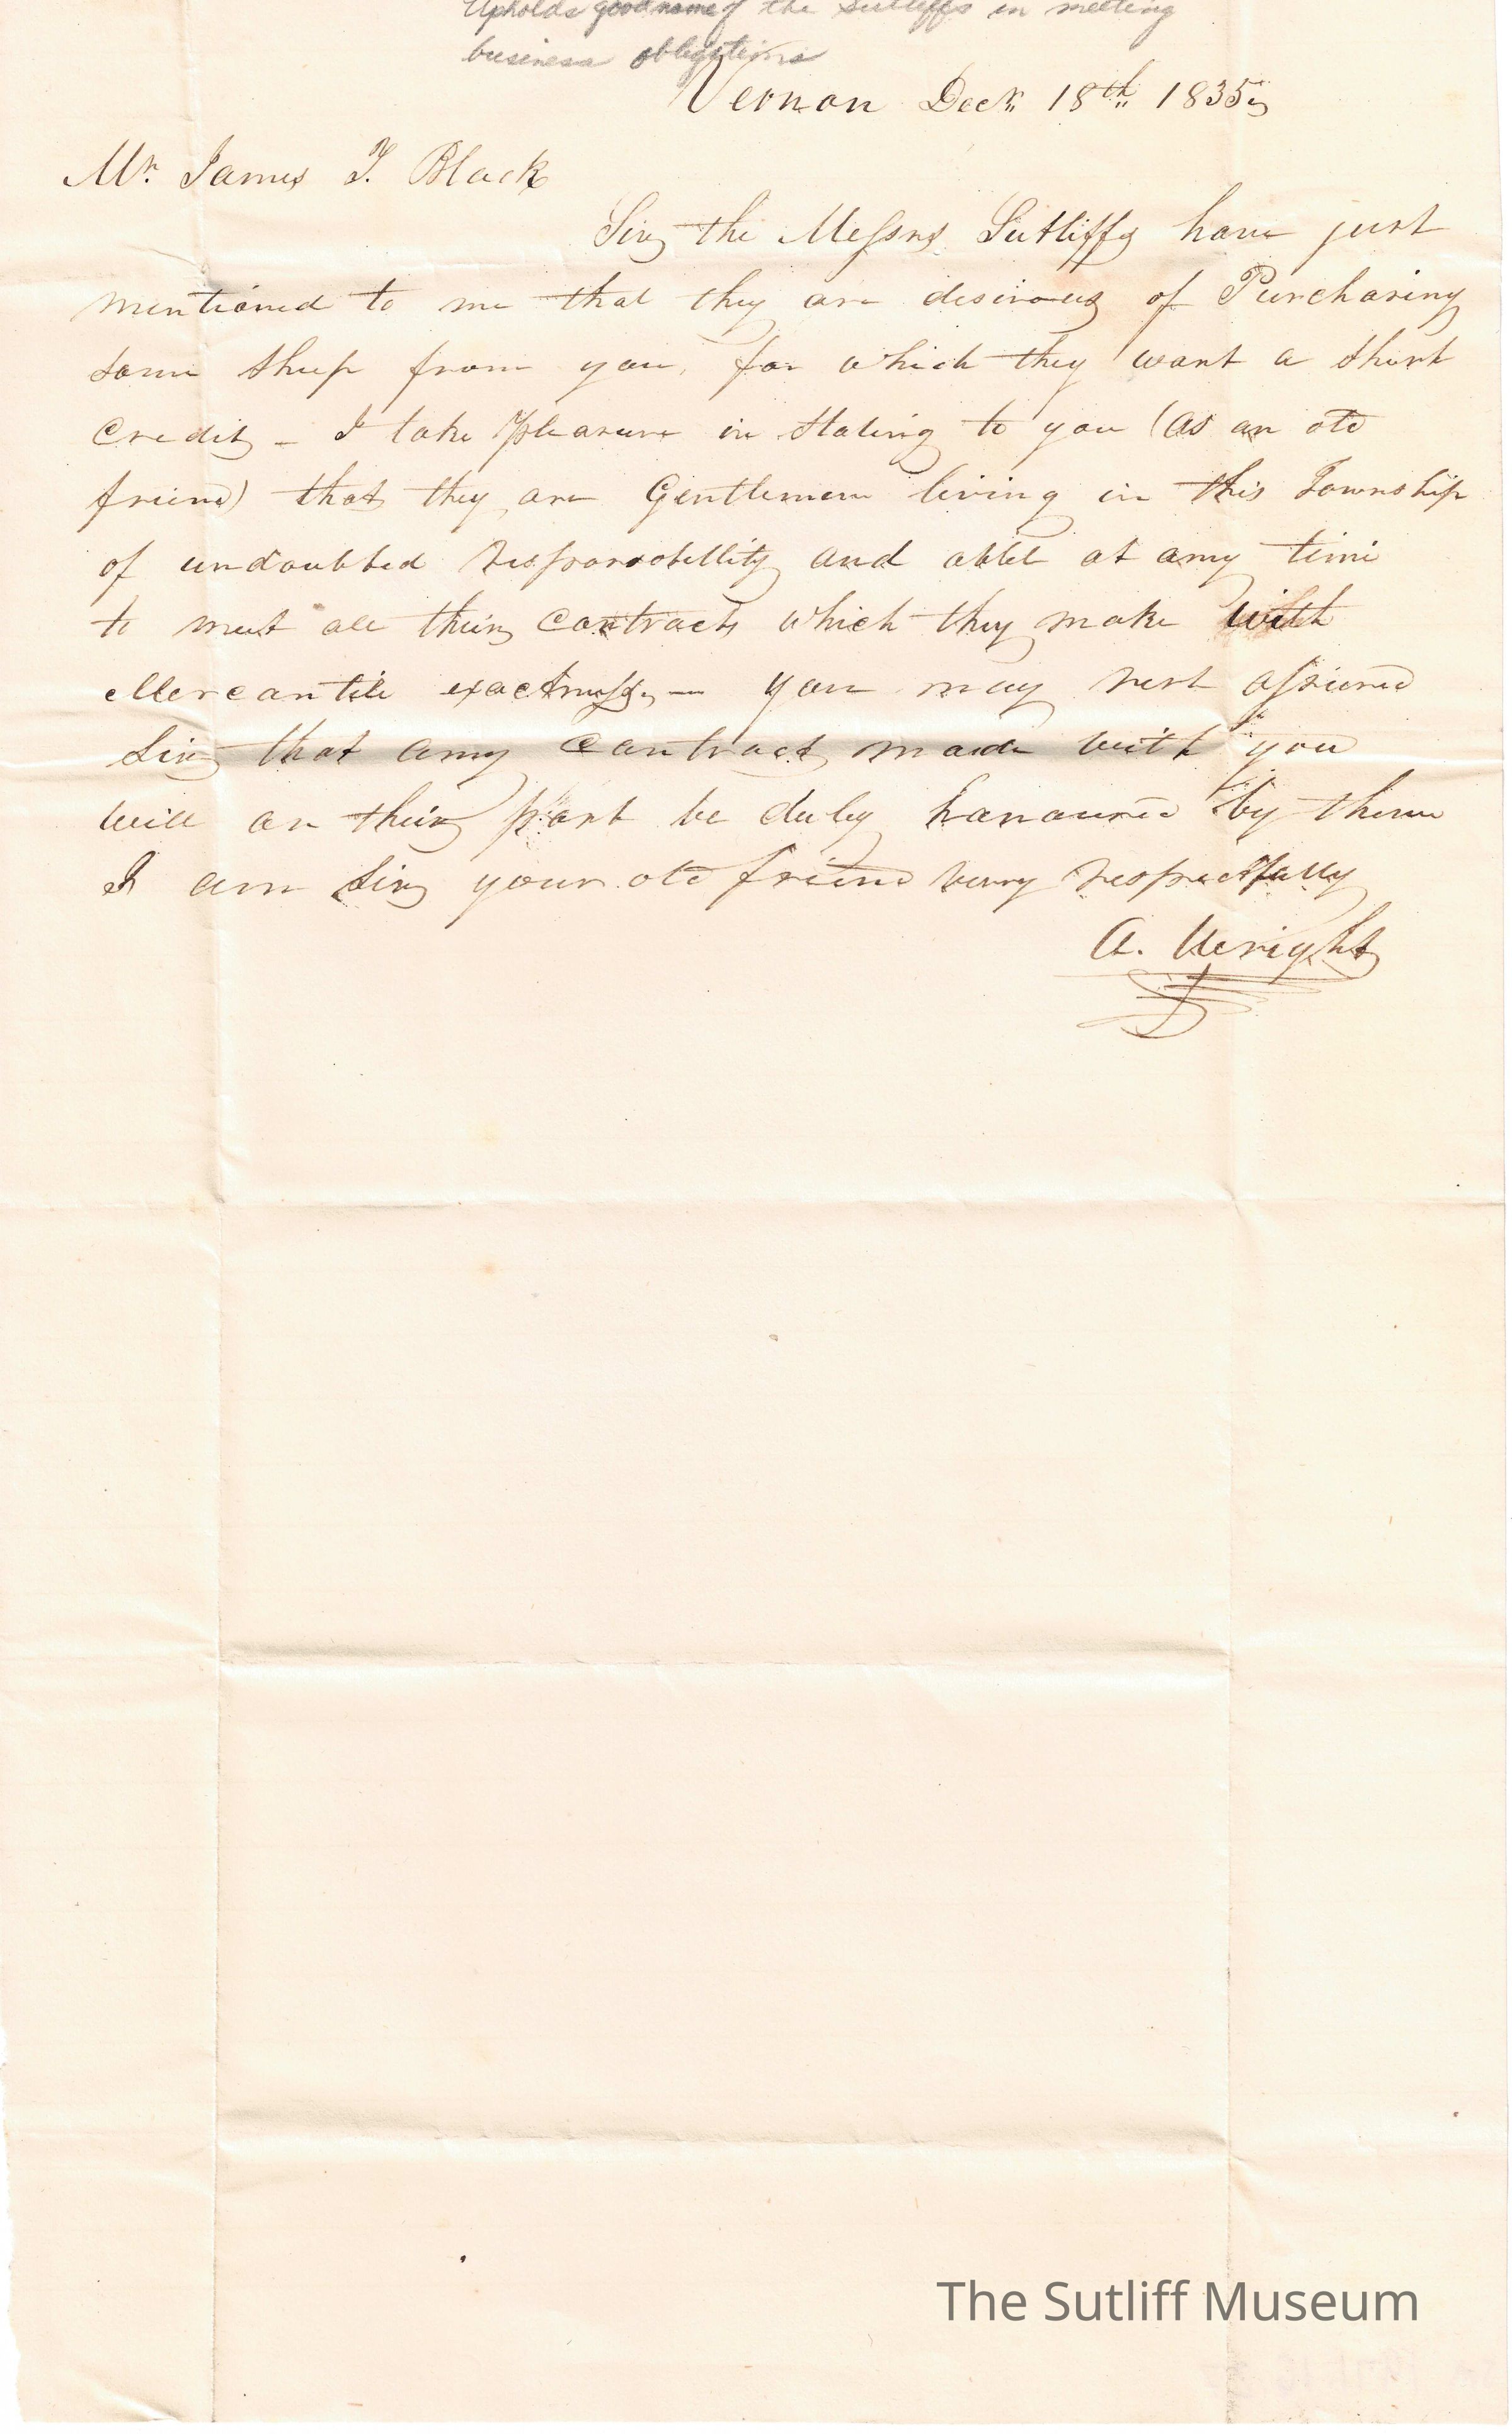 Upholds good name of the Sutliffs in meeting
business obligations
Vernon Decr 18th 1835,
Mr. James T. Black
Sir, the Messrs Sutliffs have just
mentioned to me that they are desirous of Purchasing
some sheep from you, for which they want a short
credit, - I take pleasure in stating to you (as an old
friend) that they are Gentlemen living in this Township
of undoubted responsobellity and able at any time
to meet all their contracts which they make with
Mercantile exactness, - you may rest assured
Sir, that any contract made with you
will on their part be duly honoured by them
I am Sir, your old friend very respectfully
A. Wright
The Sutliff Museum